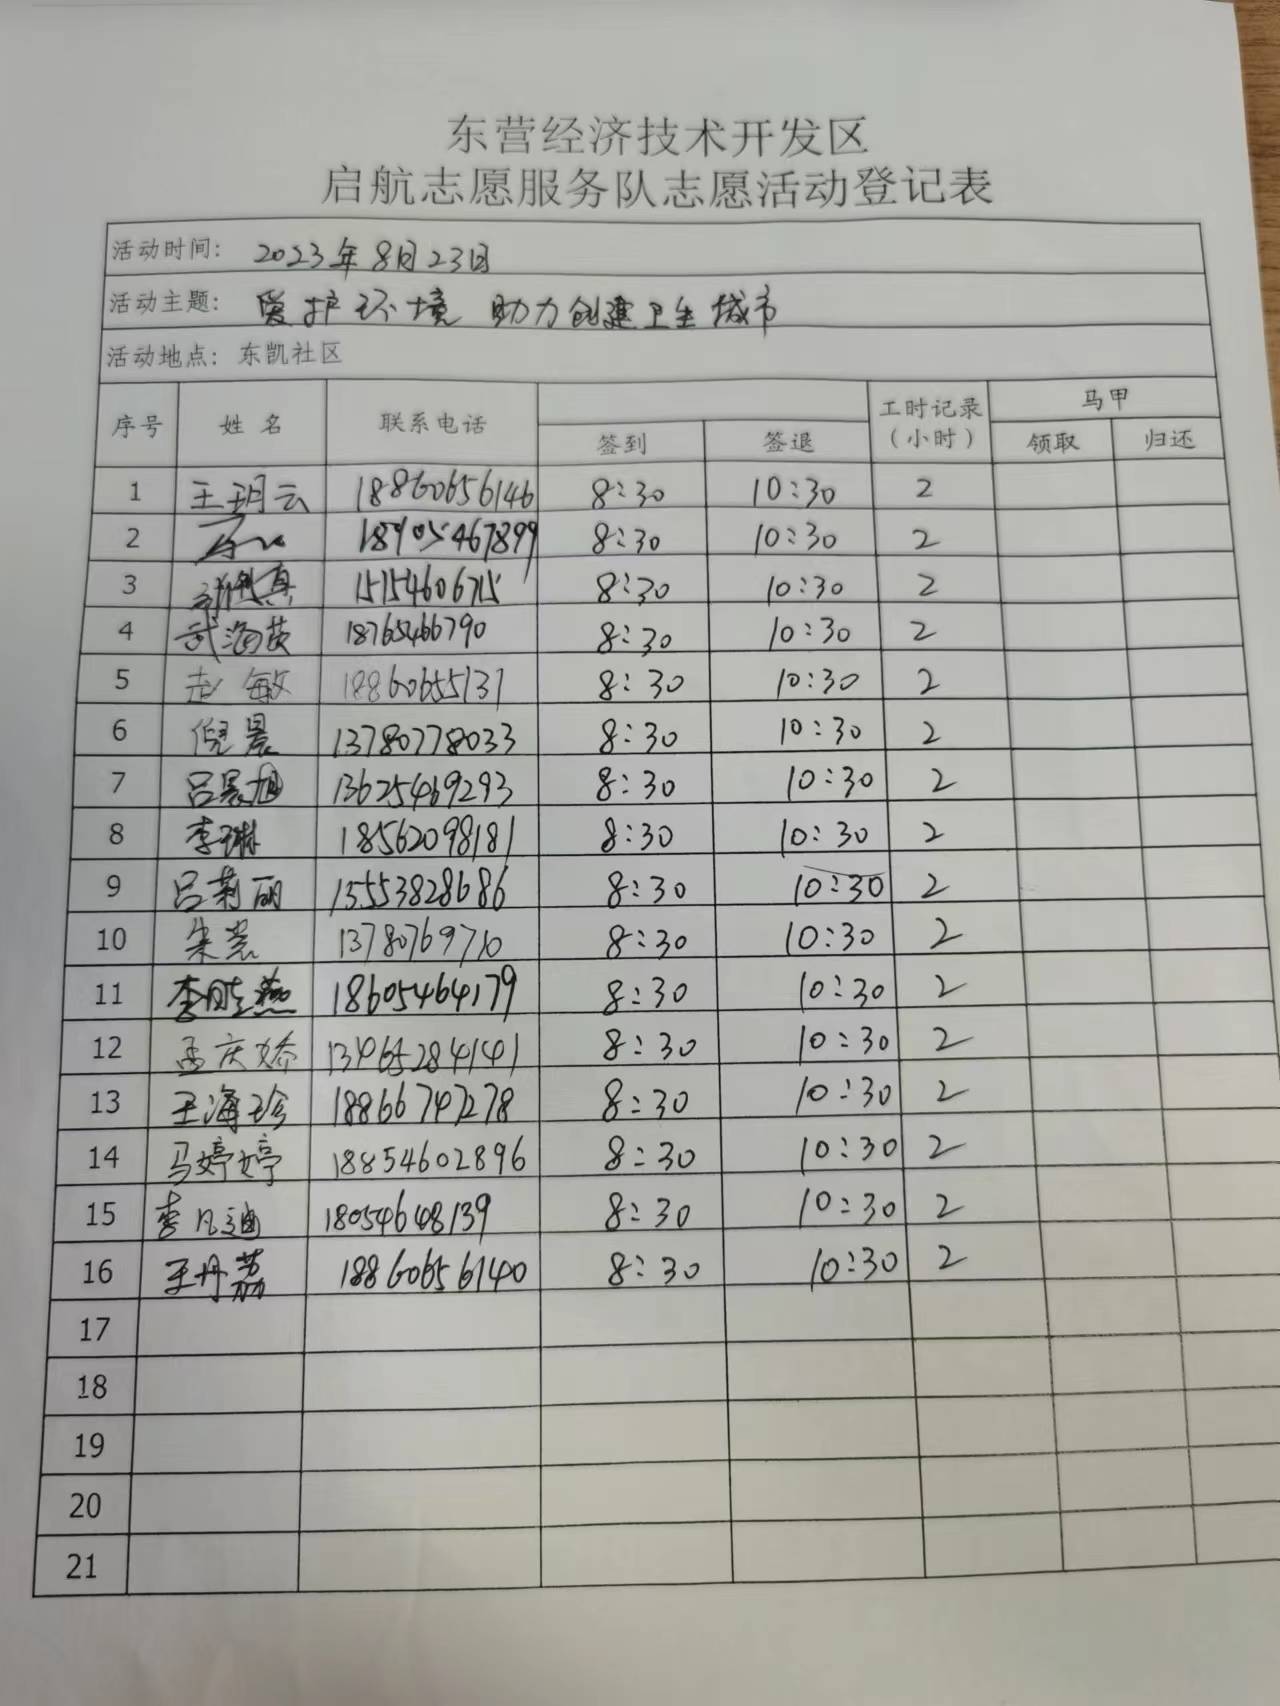 东营经济技术开发区
启航志愿服务队志愿活动登记表
活动时间: 2023年8月23日
活动主题: 爱护环境 助力创建卫生城市
活动地点: 东凯社区
序号 姓名 联系电话 签到 签退 工时记录(小时) 马甲 领取 归还
1 王玥云 18860656146 8:30 10:30 2
2 18905467899 8:30 10:30 2
3 15154606715 8:30 10:30 2
4 武海英 18765466790 8:30 10:30 2
5 赵敏 18860655131 8:30 10:30 2
6 倪晨 13780778033 8:30 10:30 2
7 吕晨旭 13625469293 8:30 10:30 2
8 李琳 18562098181 8:30 10:30 2
9 吕莉丽 15553828686 8:30 10:30 2
10 13780769710 8:30 10:30 2
11 李胜燕 18605464179 8:30 10:30 2
12 孟庆娇 13465284141 8:30 10:30 2
13 王海珍 18866747278 8:30 10:30 2
14 马婷婷 18854602896 8:30 10:30 2
15 李凡迪 18054648139 8:30 10:30 2
16 王丹荔 18860656140 8:30 10:30 2
17
18
19
20
21